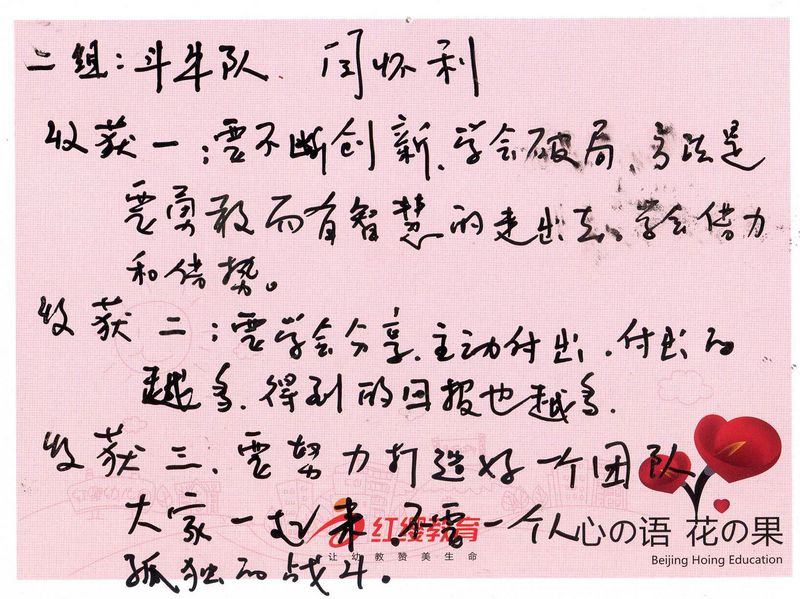 二组：斗牛队 闫怀利
收获一：要不断创新、学会破局，方法是
要勇敢而有智慧的走出去、学会借力
和借势。
收获二：要学会分享、主动付出，付出的
越多，得到的回报也越多。
收获三、要努力打造好一个团队
大家一起来，不要一个人
孤独的战斗。
红缨教育
让幼教赞美生命
心の语 花の果
Beijing Hoing Education